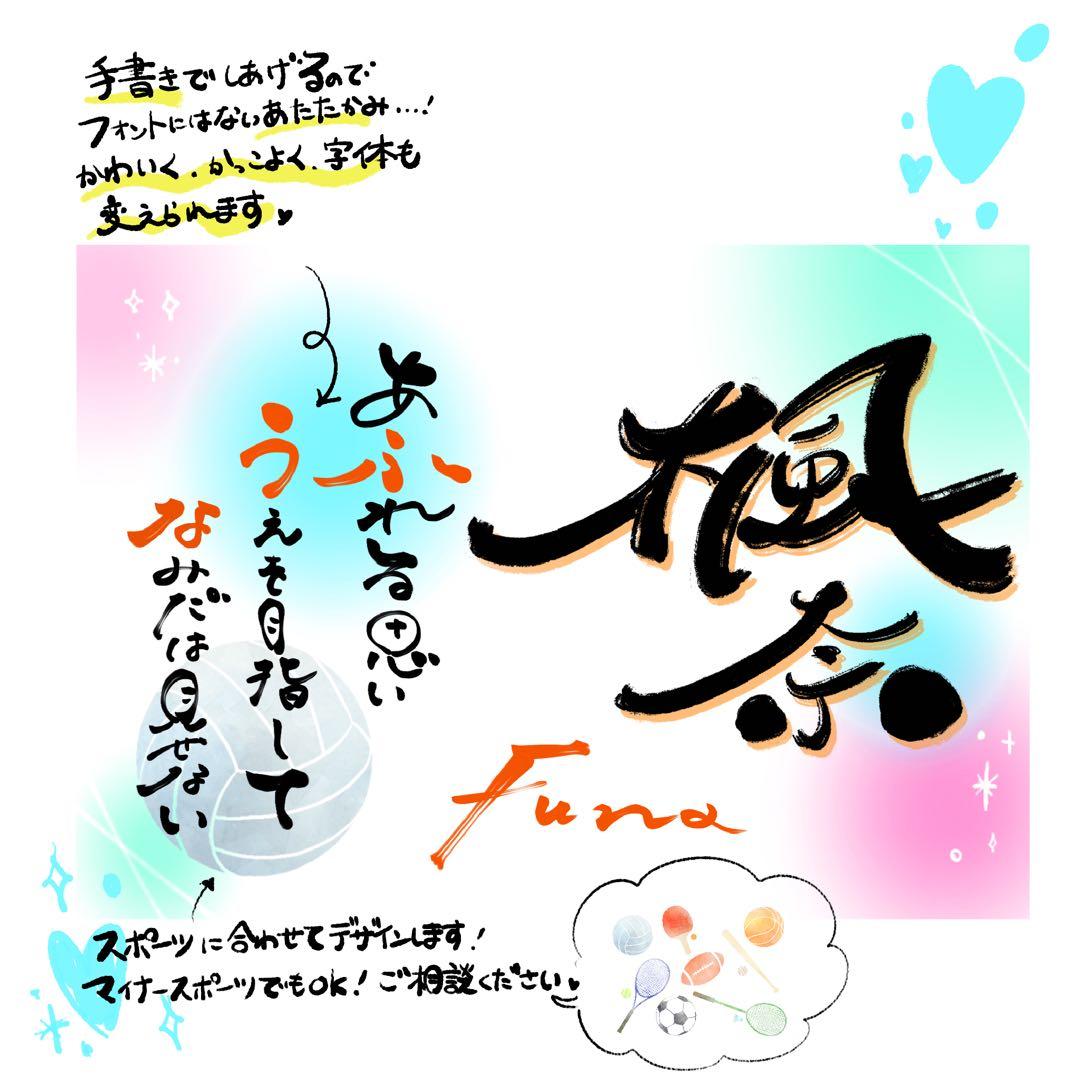 手書きでしあげるので
フォントにはないあたたかみ…！
かわいく、かっこよく、字体も
変えられます♥
楓
奈
Funa
あふれる思い
うえを目指して
なみだは見せない
スポーツに合わせてデザインします！
マイナースポーツでもOK！ご相談ください♥